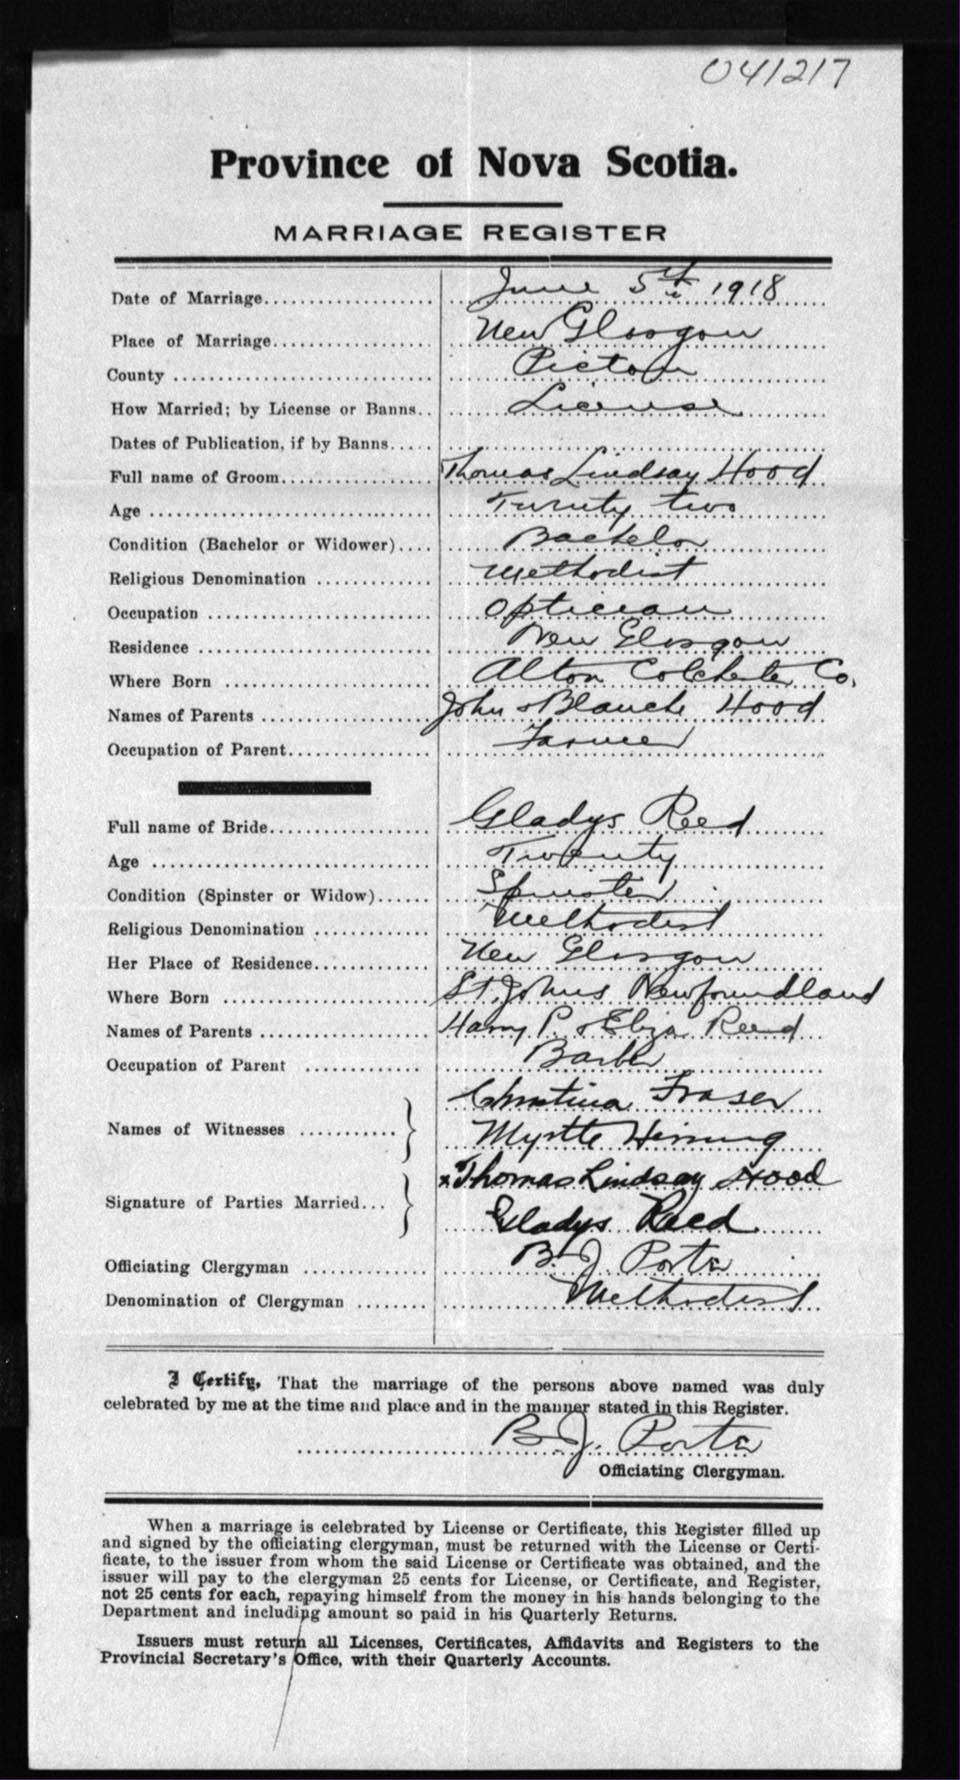 041217
Province of Nova Scotia.
MARRIAGE REGISTER
Date of Marriage.................... June 5th 1918
Place of Marriage................... New Glasgow
County .............................. Pictou
How Married; by License or Banns.. License
Dates of Publication, if by Banns.....
Full name of Groom.................. Thomas Lindsay Hood
Age ................................. Twenty two
Condition (Bachelor or Widower).... Bachelor
Religious Denomination ............. Methodist
Occupation .......................... Optician
Residence ........................... New Glasgow
Where Born ........................ Alton Colchester Co.
Names of Parents ................... John & Blanche Hood
Occupation of Parent................ Farmer
Full name of Bride................... Gladys Reed
Age ................................. Twenty
Condition (Spinster or Widow)...... Spinster
Religious Denomination ............. Methodist
Her Place of Residence.............. New Glasgow
Where Born ........................ St. Johns Newfoundland
Names of Parents ................... Harry P. & Eliza Reed
Occupation of Parent ............. Barber
Christina Fraser
Names of Witnesses ...........
Myrtle
× Thomas Lindsay Hood
Signature of Parties Married...
Gladys Reed
Officiating Clergyman .............. B. J. Porter
Denomination of Clergyman ........ Methodist
I Certify, That the marriage of the persons above named was duly
celebrated by me at the time and place and in the manner stated in this Register.
B. J. Porter
Officiating Clergyman.
When a marriage is celebrated by License or Certificate, this Register filled up
and signed by the officiating clergyman, must be returned with the License or Certi-
ficate, to the issuer from whom the said License or Certificate was obtained, and the
issuer will pay to the clergyman 25 cents for License, or Certificate, and Register,
not 25 cents for each, repaying himself from the money in his hands belonging to the
Department and including amount so paid in his Quarterly Returns.
Issuers must return all Licenses, Certificates, Affidavits and Registers to the
Provincial Secretary's Office, with their Quarterly Accounts.